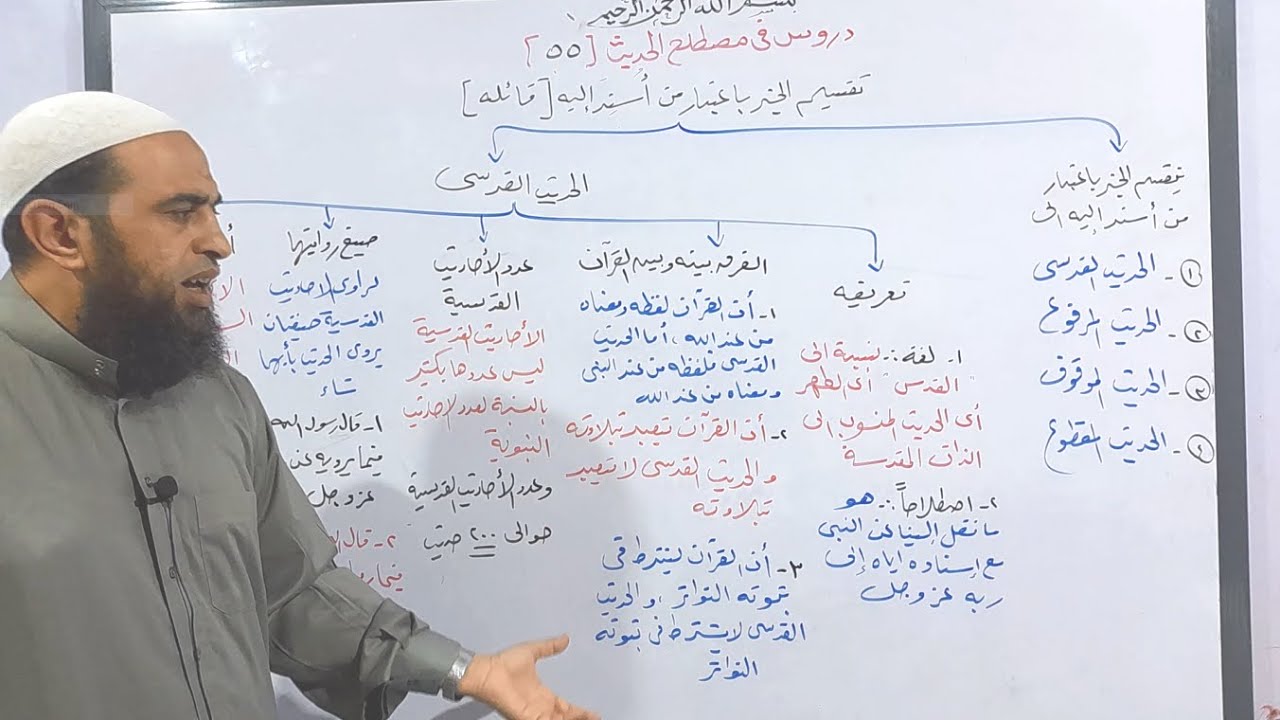 بسم الله الرحمن الرحيم
دروس في مصطلح الحديث [٥٥]
تقسيم الخبر باعتبار من أُسنِدَ إليه [قائله]
ينقسم الخبر باعتبار
من أسند إليه الى
١- الحديث القدسى
٢- الحديث المرفوع
٣- الحديث الموقوف
٤- الحديث المقطوع
الحديث القدسى
تعريفه
١- لغة:- نسبة الى
"القدس" أى الطهر
أى الحديث المنسوب الى
الذات المقدسة
٢- اصطلاحاً:- هو
ما نقل إلينا عن النبى
مع إسناده اياه إلى
ربه عز وجل
الفرق بينه وبين القرآن
١- أن القرآن لفظه ومعناه
من عند الله، أما الحديث
القدسى فلفظه من عند النبى
ومعناه من عند الله
٢- أن القرآن يتعبد بتلاوته
والحديث القدسى لا يتعبد
بتلاوته
٣- أن القرآن يشترط في
ثبوته التواتر، والحديث
القدسى لا يشترط فى ثبوته
التواتر
عدد الأحاديث
القدسية
الأحاديث القدسية
ليس عددها بكثير
بالنسبة لعدد الأحاديث
النبوية
وعدد الأحاديث القدسية
حوالى ٢٠٠ حديث
صيغ روايتها
لراوى الأحاديث
القدسية صيغتان
يروى الحديث بأيها
شاء
١- قال رسول الله
فيما يرويه عن
عز وجل
٢- قال